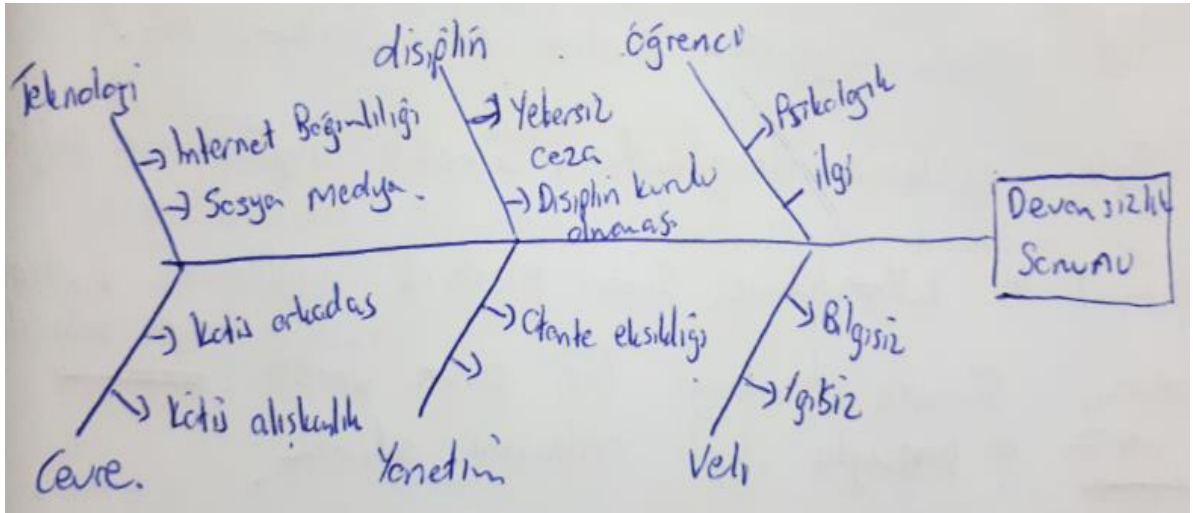 Teknoloji
İnternet Bağımlılığı
Sosya Medya.
disiplin
Yetersiz
ceza
Disiplin kurulu
olmaması
öğrenci
Psikolojik
ilgi
Devamsızlık
Sorunu
Kötü arkadaş
Kötü alışkanlık
Çevre.
Otorite eksikliği
Yönetim
Bilgisiz
İlgisiz
Veli